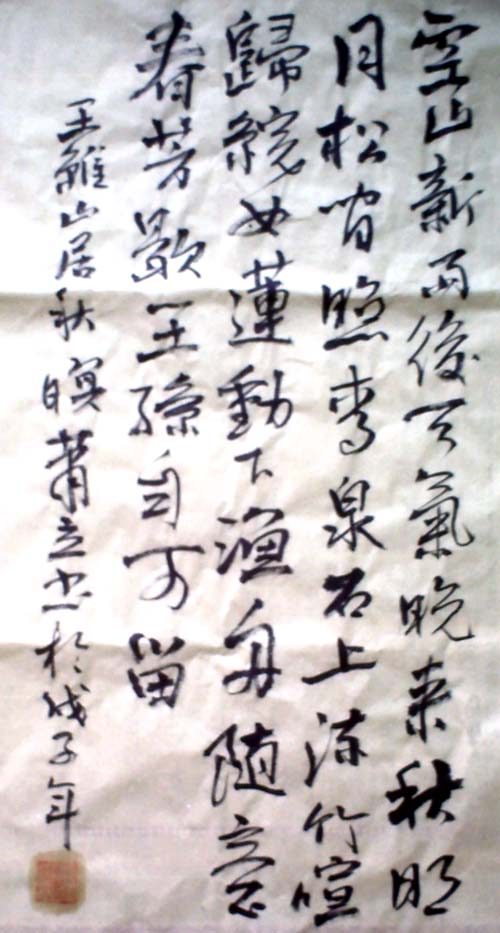 空山新雨後天氣晚来秋明
月松间照清泉石上流竹喧
歸浣女蓮動下漁舟随意
春芳歇王孫自可留
王維山居秋暝蕭立书於戊子年